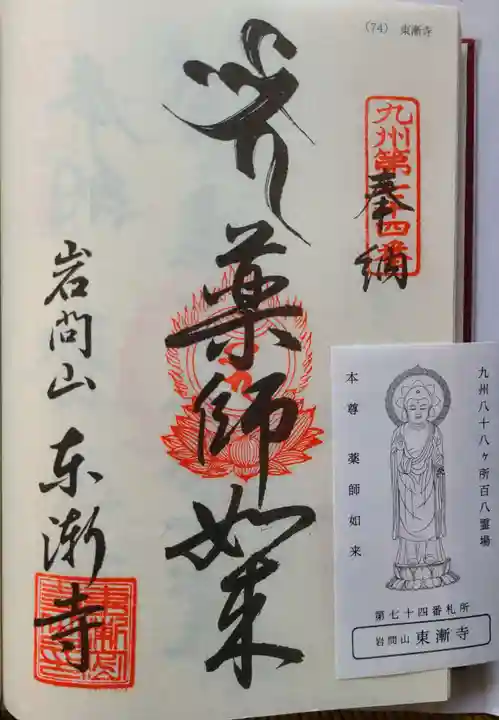 (74) 東漸寺
九州第七十四番
奉納
薬師如来
岩問山 東漸寺
九州八十八ヶ所百八霊場
本尊 薬師如来
第七十四番札所
岩問山 東漸寺